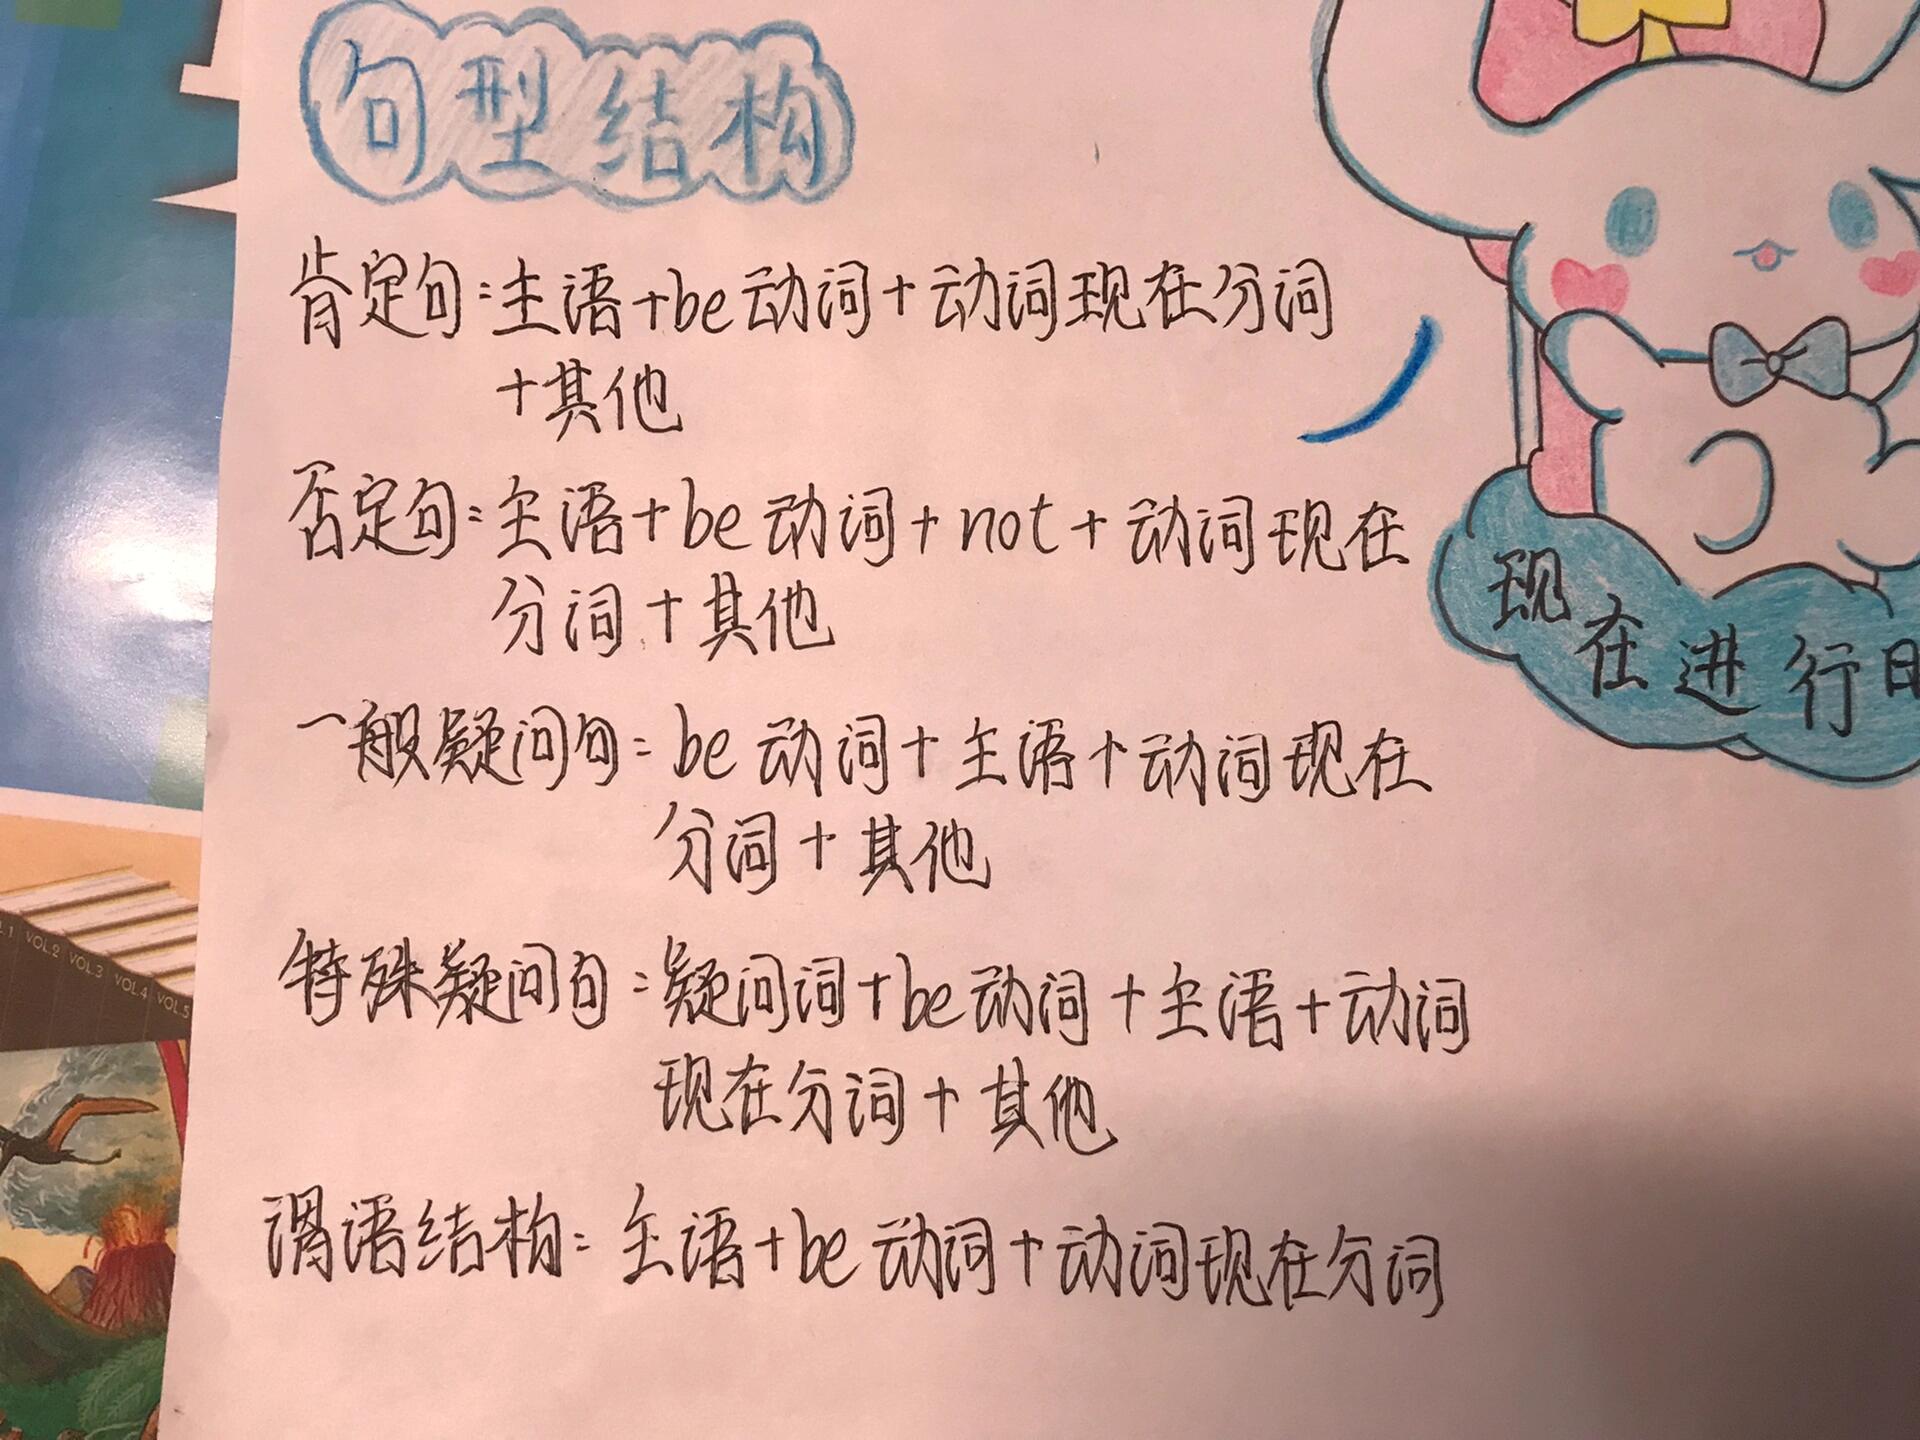 句型结构
肯定句:主语+be动词+动词现在分词
+其他
否定句:主语+be动词+not+动词现在
分词+其他
一般疑问句:be动词+主语+动词现在
分词+其他
特殊疑问句:疑问词+be动词+主语+动词
现在分词+其他
谓语结构:主语+be动词+动词现在分词
现在进行
VOL.2 VOL.3 VOL.4 VOL.5